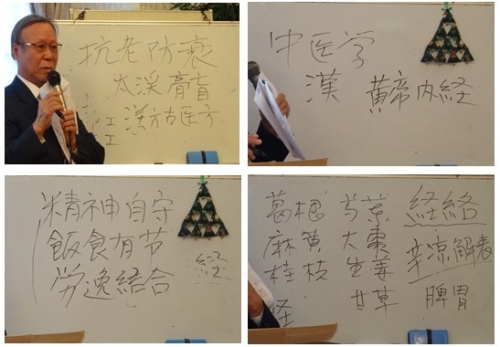 抗老防衰
太渓膏肓
漢方医学
中医学
漢 黄帝内経
精神自守
飲食有节
労逸結合
葛根 芍薬 経絡
麻黄 大棗 辛凉解表
桂枝 生姜
甘草 脾胃
経